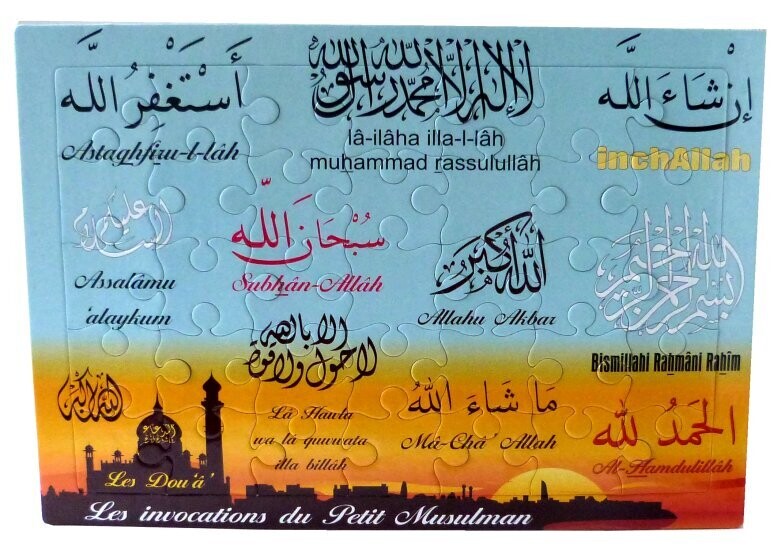 أَسْتَغْفِرُ اللَّه
Astaghfiru-l-lâh
لا إله إلا الله محمد رسول الله
lâ-ilâha illa-l-lâh
muhammad rassulullâh
إنْ شَاءَ اللَّه
inchAllah
السلام عليكم
Assalâmu
'alaykum
سُبْحَانَ اللَّه
Subhân-Allâh
اللهُ أَكْبَر
Allahu Akbar
بسم الله الرحمن الرحيم
Bismillahi Rahmâni Rahîm
لا حول ولا قوة
إلا بالله
Lâ Hawla
wa lâ quwwata
illa billâh
مَا شَاءَ اللَّه
Mâ-Châ' Allah
الحَمْدُ لله
Al-Hamdulillâh
الله أكبر
الدعاء
Les Dou'â'
Les invocations du Petit Musulman